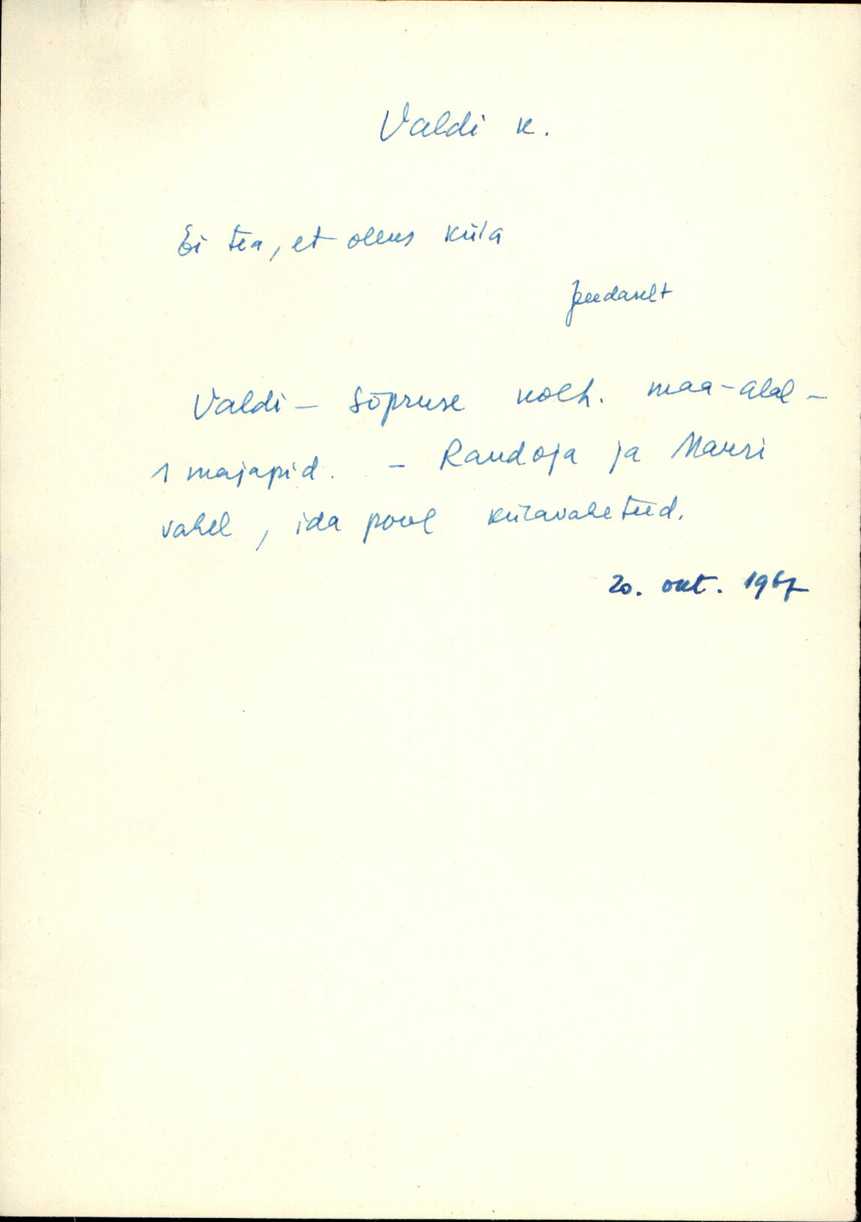 Valdi k.
Ei tea, et oleks küla
Jeedaselt
Valdi – Sõpruse kolh. maa-alal –
1 majapid. – Raudoja ja Mauri
vahel, ida pool külavaheteed.
20. okt. 1967